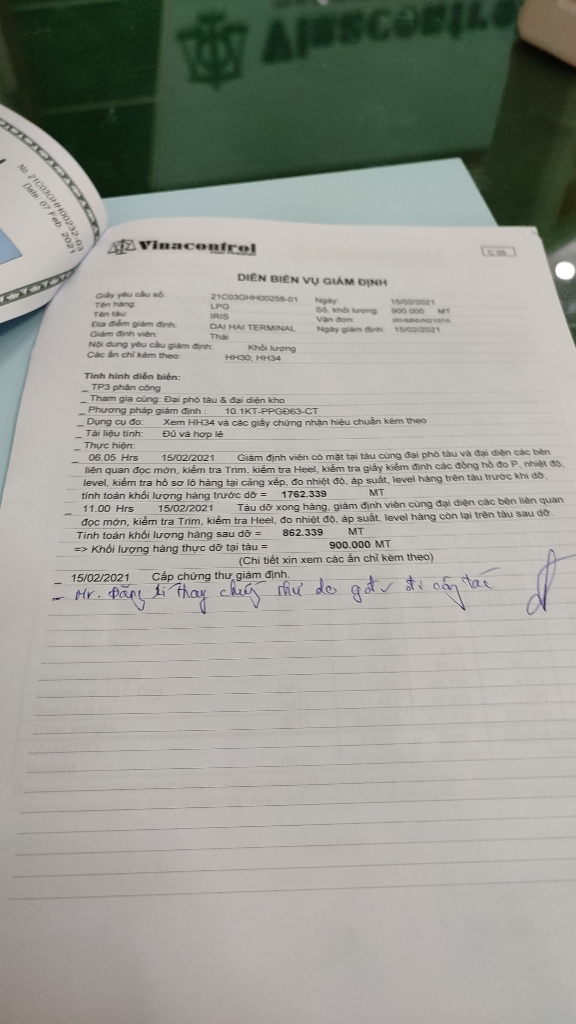 Vinacontrol
No. 21C03GHH00232-03
Date. 07 Feb. 2021
Vinacontrol
C 05
DIỄN BIẾN VỤ GIÁM ĐỊNH
Giấy yêu cầu số: 21C03GHH00258-01 Ngày: 15/02/2021
Tên hàng: LPG Số, khối lượng: 900.000 MT
Tên tàu: IRIS Vận đơn:
Địa điểm giám định: DAI HAI TERMINAL Ngày giám định: 15/02/2021
Giám định viên: Thái
Nội dung yêu cầu giám định: Khối lượng
Các ấn chỉ kèm theo: HH30; HH34
Tình hình diễn biến:
_ TP3 phân công
_ Tham gia cùng: Đại phó tàu & đại diện kho
_ Phương pháp giám định : 10.1KT-PPGĐ63-CT
_ Dụng cụ đo: Xem HH34 và các giấy chứng nhận hiệu chuẩn kèm theo
_ Tài liệu tính: Đủ và hợp lệ
_ Thực hiện:
_ 06.05 Hrs 15/02/2021 Giám định viên có mặt tại tàu cùng đại phó tàu và đại diện các bên
liên quan đọc mớn, kiểm tra Trim, kiểm tra Heel, kiểm tra giấy kiểm định các đồng hồ đo P, nhiệt độ,
level, kiểm tra hồ sơ lô hàng tại cảng xếp, đo nhiệt độ, áp suất, level hàng trên tàu trước khi dỡ.
tính toán khối lượng hàng trước dỡ = 1762.339 MT
_ 11.00 Hrs 15/02/2021 Tàu dỡ xong hàng, giám định viên cùng đại diện các bên liên quan
đọc mớn, kiểm tra Trim, kiểm tra Heel, đo nhiệt độ, áp suất, level hàng còn lại trên tàu sau dỡ.
Tính toán khối lượng hàng sau dỡ = 862.339 MT
=> Khối lượng hàng thực dỡ tại tàu = 900.000 MT
(Chi tiết xin xem các ấn chỉ kèm theo)
_ 15/02/2021 Cấp chứng thư giám định.
_ Mr. Đăng kí thay chứng thư do gđv đi công tác